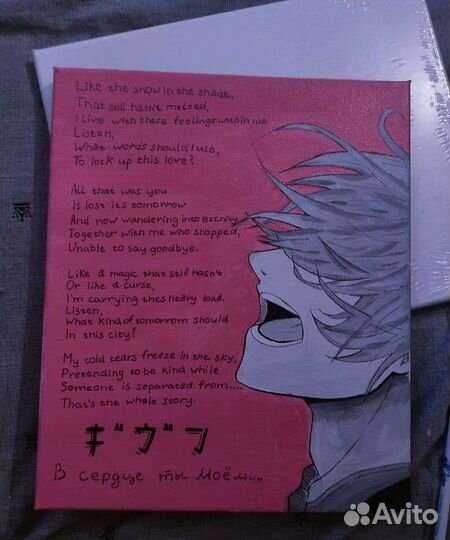 Like the snow in the shade,
That still hasn't melted,
I live with these feelings within me
Listen,
What words should I use,
To lock up this love?
All that was you
Is lost its tomorrow
And now wandering into eternity
Together with me who shopped,
Unable to say goodbye.
Like a magic that still hasn't
Or like a curse,
I'm carrying thes heavy load.
Listen,
What kind of tomorrom should
In this city?
My cold tears freeze in the sky,
Pretending to be kind while
Someone is separated from....
That's the whole story.
ギヴン
В сердце ты моём....
Avito